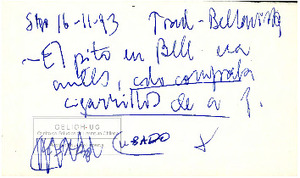 Stgo 16-11-93 Trad-Bellavista
- El pito en Bell. era
antes, cdo compraba
cigarrillos de a 1.
CELICH-UC
USADO